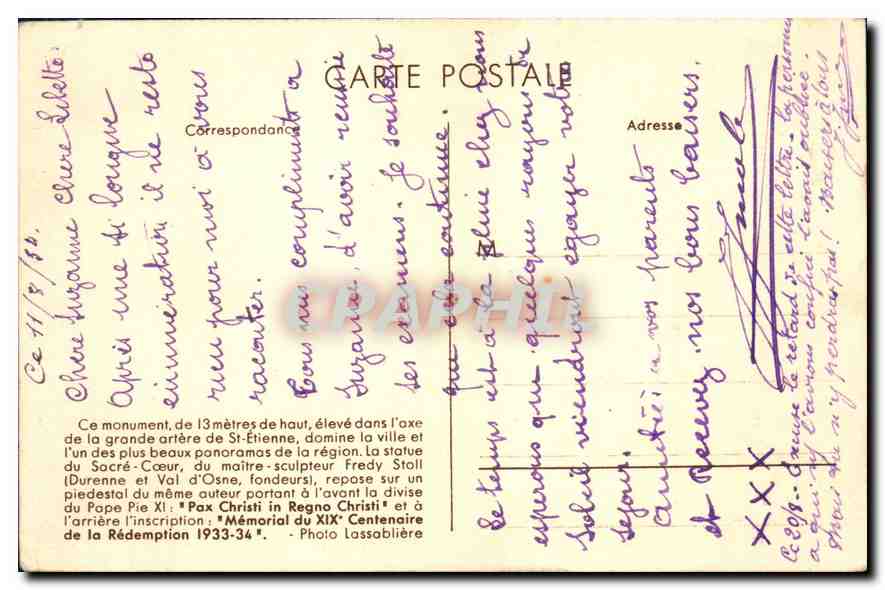 CARTE POSTALE
Correspondance
Adresse
Ce 11/8/34.
Chère Suzanne chère Lisette.
Après une si longue
enumeration il ne reste
rien pour moi a vous
raconter.
Tous nos compliments a
Suzanne, d'avoir reussie
ses examens. Je souhaite
que cela continue.
Le temps est a la pluie chez nous
esperons que quelques rayons de
Soleil viendront egayer votre
sejour.
Amitiés a vos parents
et Recevez nos bons baisers.
XXX
Ce 20/8 - Excuse le retard de cette lettre - la personne
a qui n/ l'avions confié l'avait oubliée.
Mais tu n'y perdras pas! Baisers à tous
Ce monument, de 13 mètres de haut, élevé dans l'axe
de la grande artère de St-Étienne, domine la ville et
l'un des plus beaux panoramas de la région. La statue
du Sacré-Cœur, du maître-sculpteur Fredy Stoll
(Durenne et Val d'Osne, fondeurs), repose sur un
piedestal du même auteur portant à l'avant la divise
du Pape Pie XI : "Pax Christi in Regno Christi" et à
l'arrière l'inscription : "Mémorial du XIXe Centenaire
de la Rédemption 1933-34". - Photo Lassablière
CPAPHIL